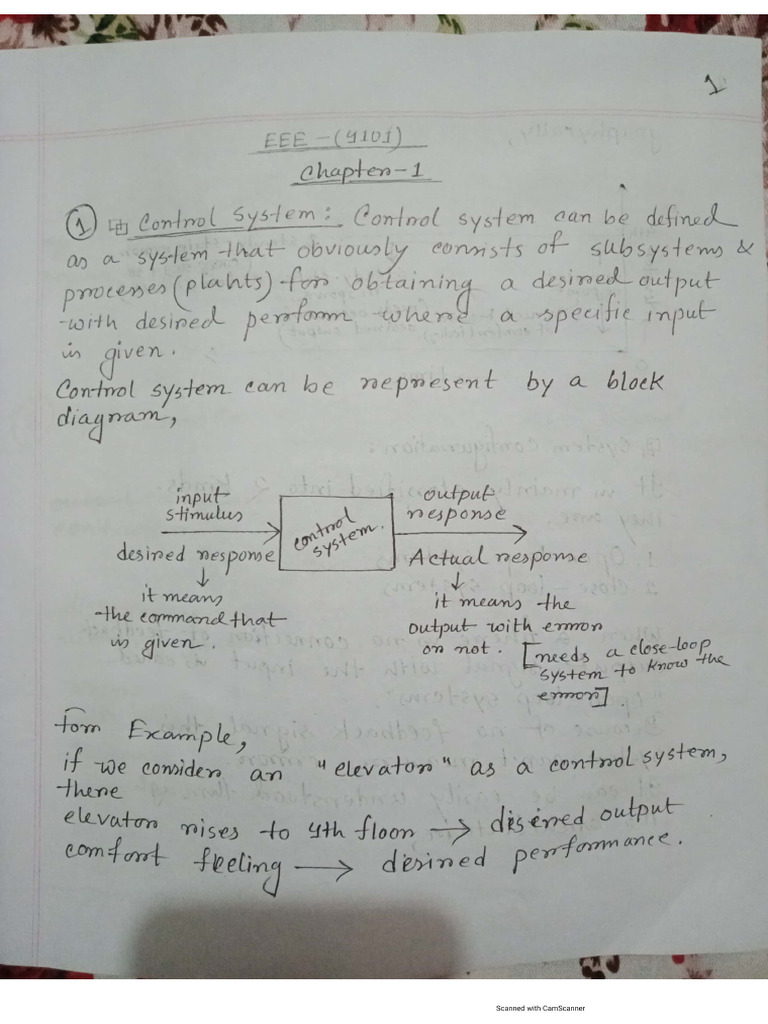 1
EEE-(4101)
Chapter-1
1 Control System: Control system can be defined
as a system that obviously consists of subsystems &
processes (plants) for obtaining a desired output
with desired perform where a specific input
is given.
Control system can be represent by a block
diagram,
input
stimulus
desired response
it means
the command that
is given.
control
system.
output
response
Actual response
it means the
output with error
or not. [needs a close-loop
system to know the
error].
For Example,
if we consider an "elevator" as a control system,
there
elevator rises to 4th floor → desired output
comfort feeling → desired performance.
Scanned with CamScanner